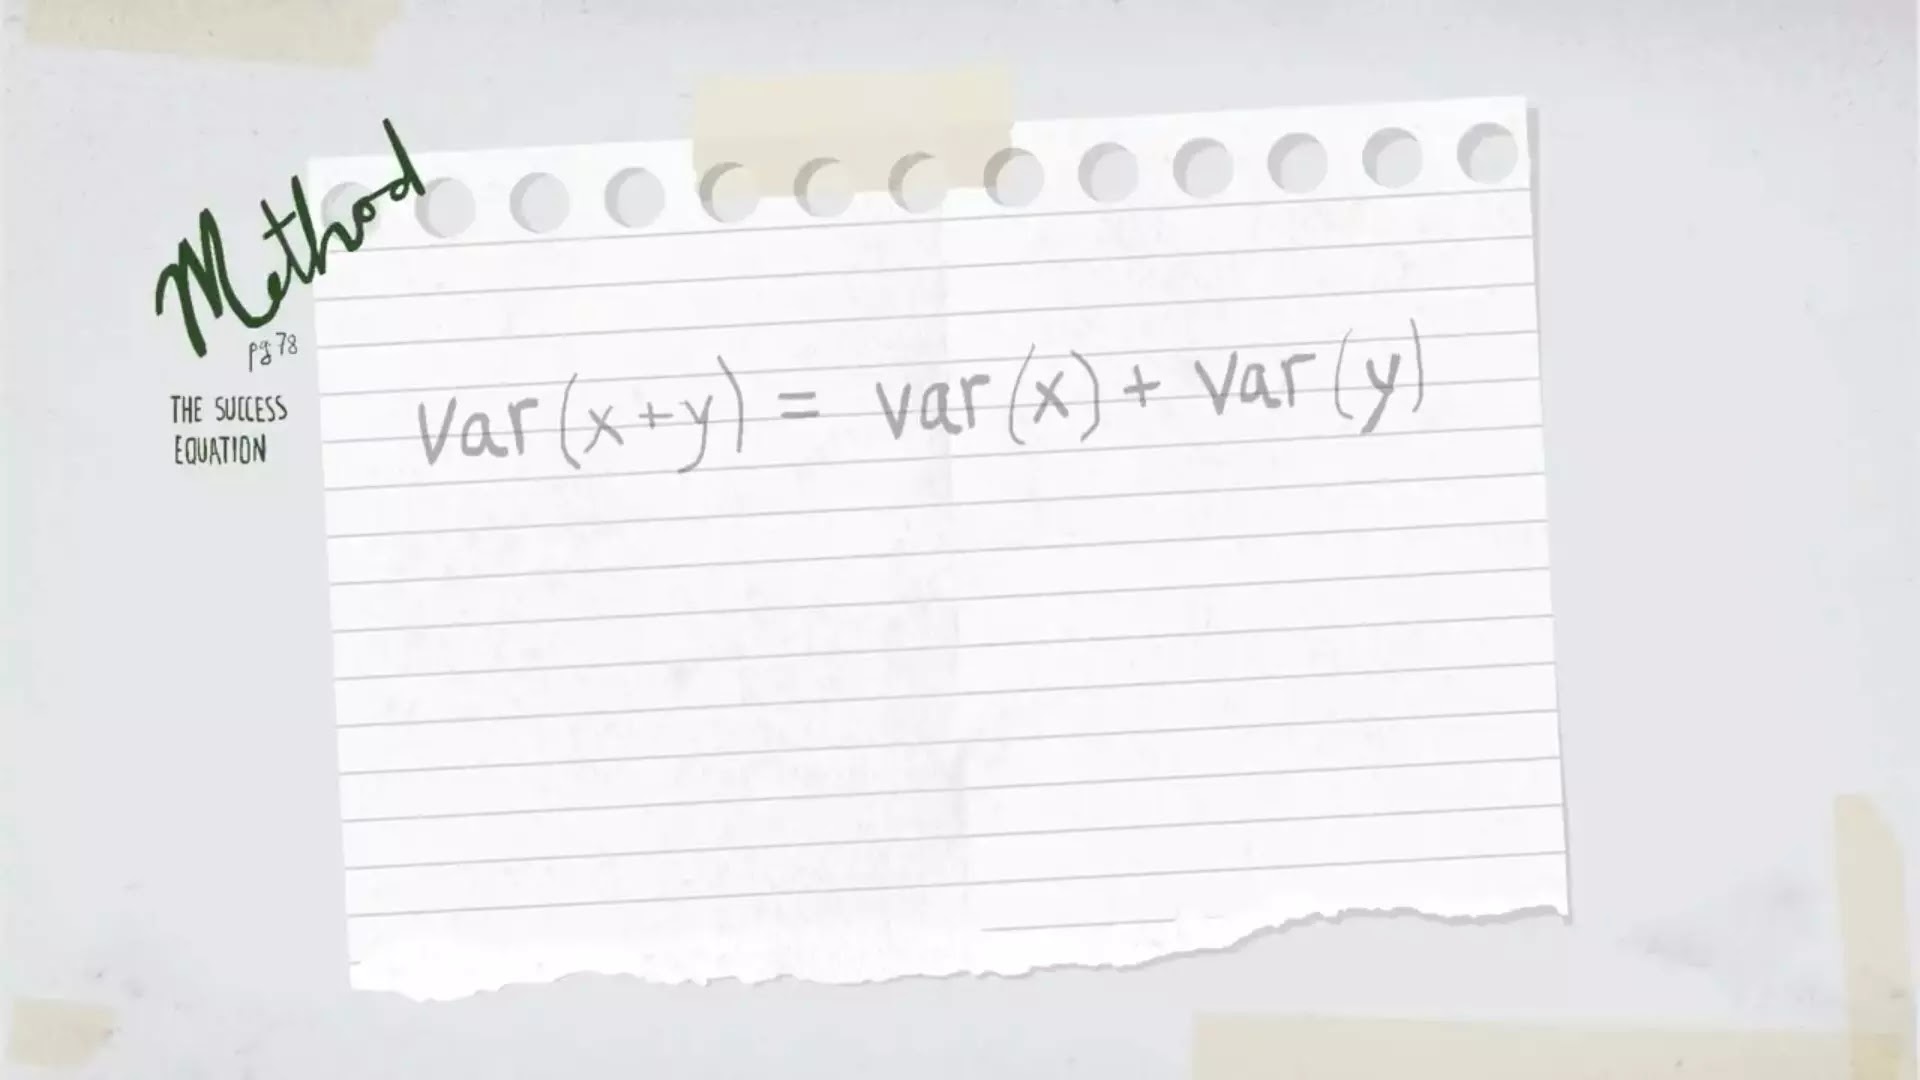 Method
pg 78
THE SUCCESS
EQUATION
Var (x+y) = var (x) + Var (y)